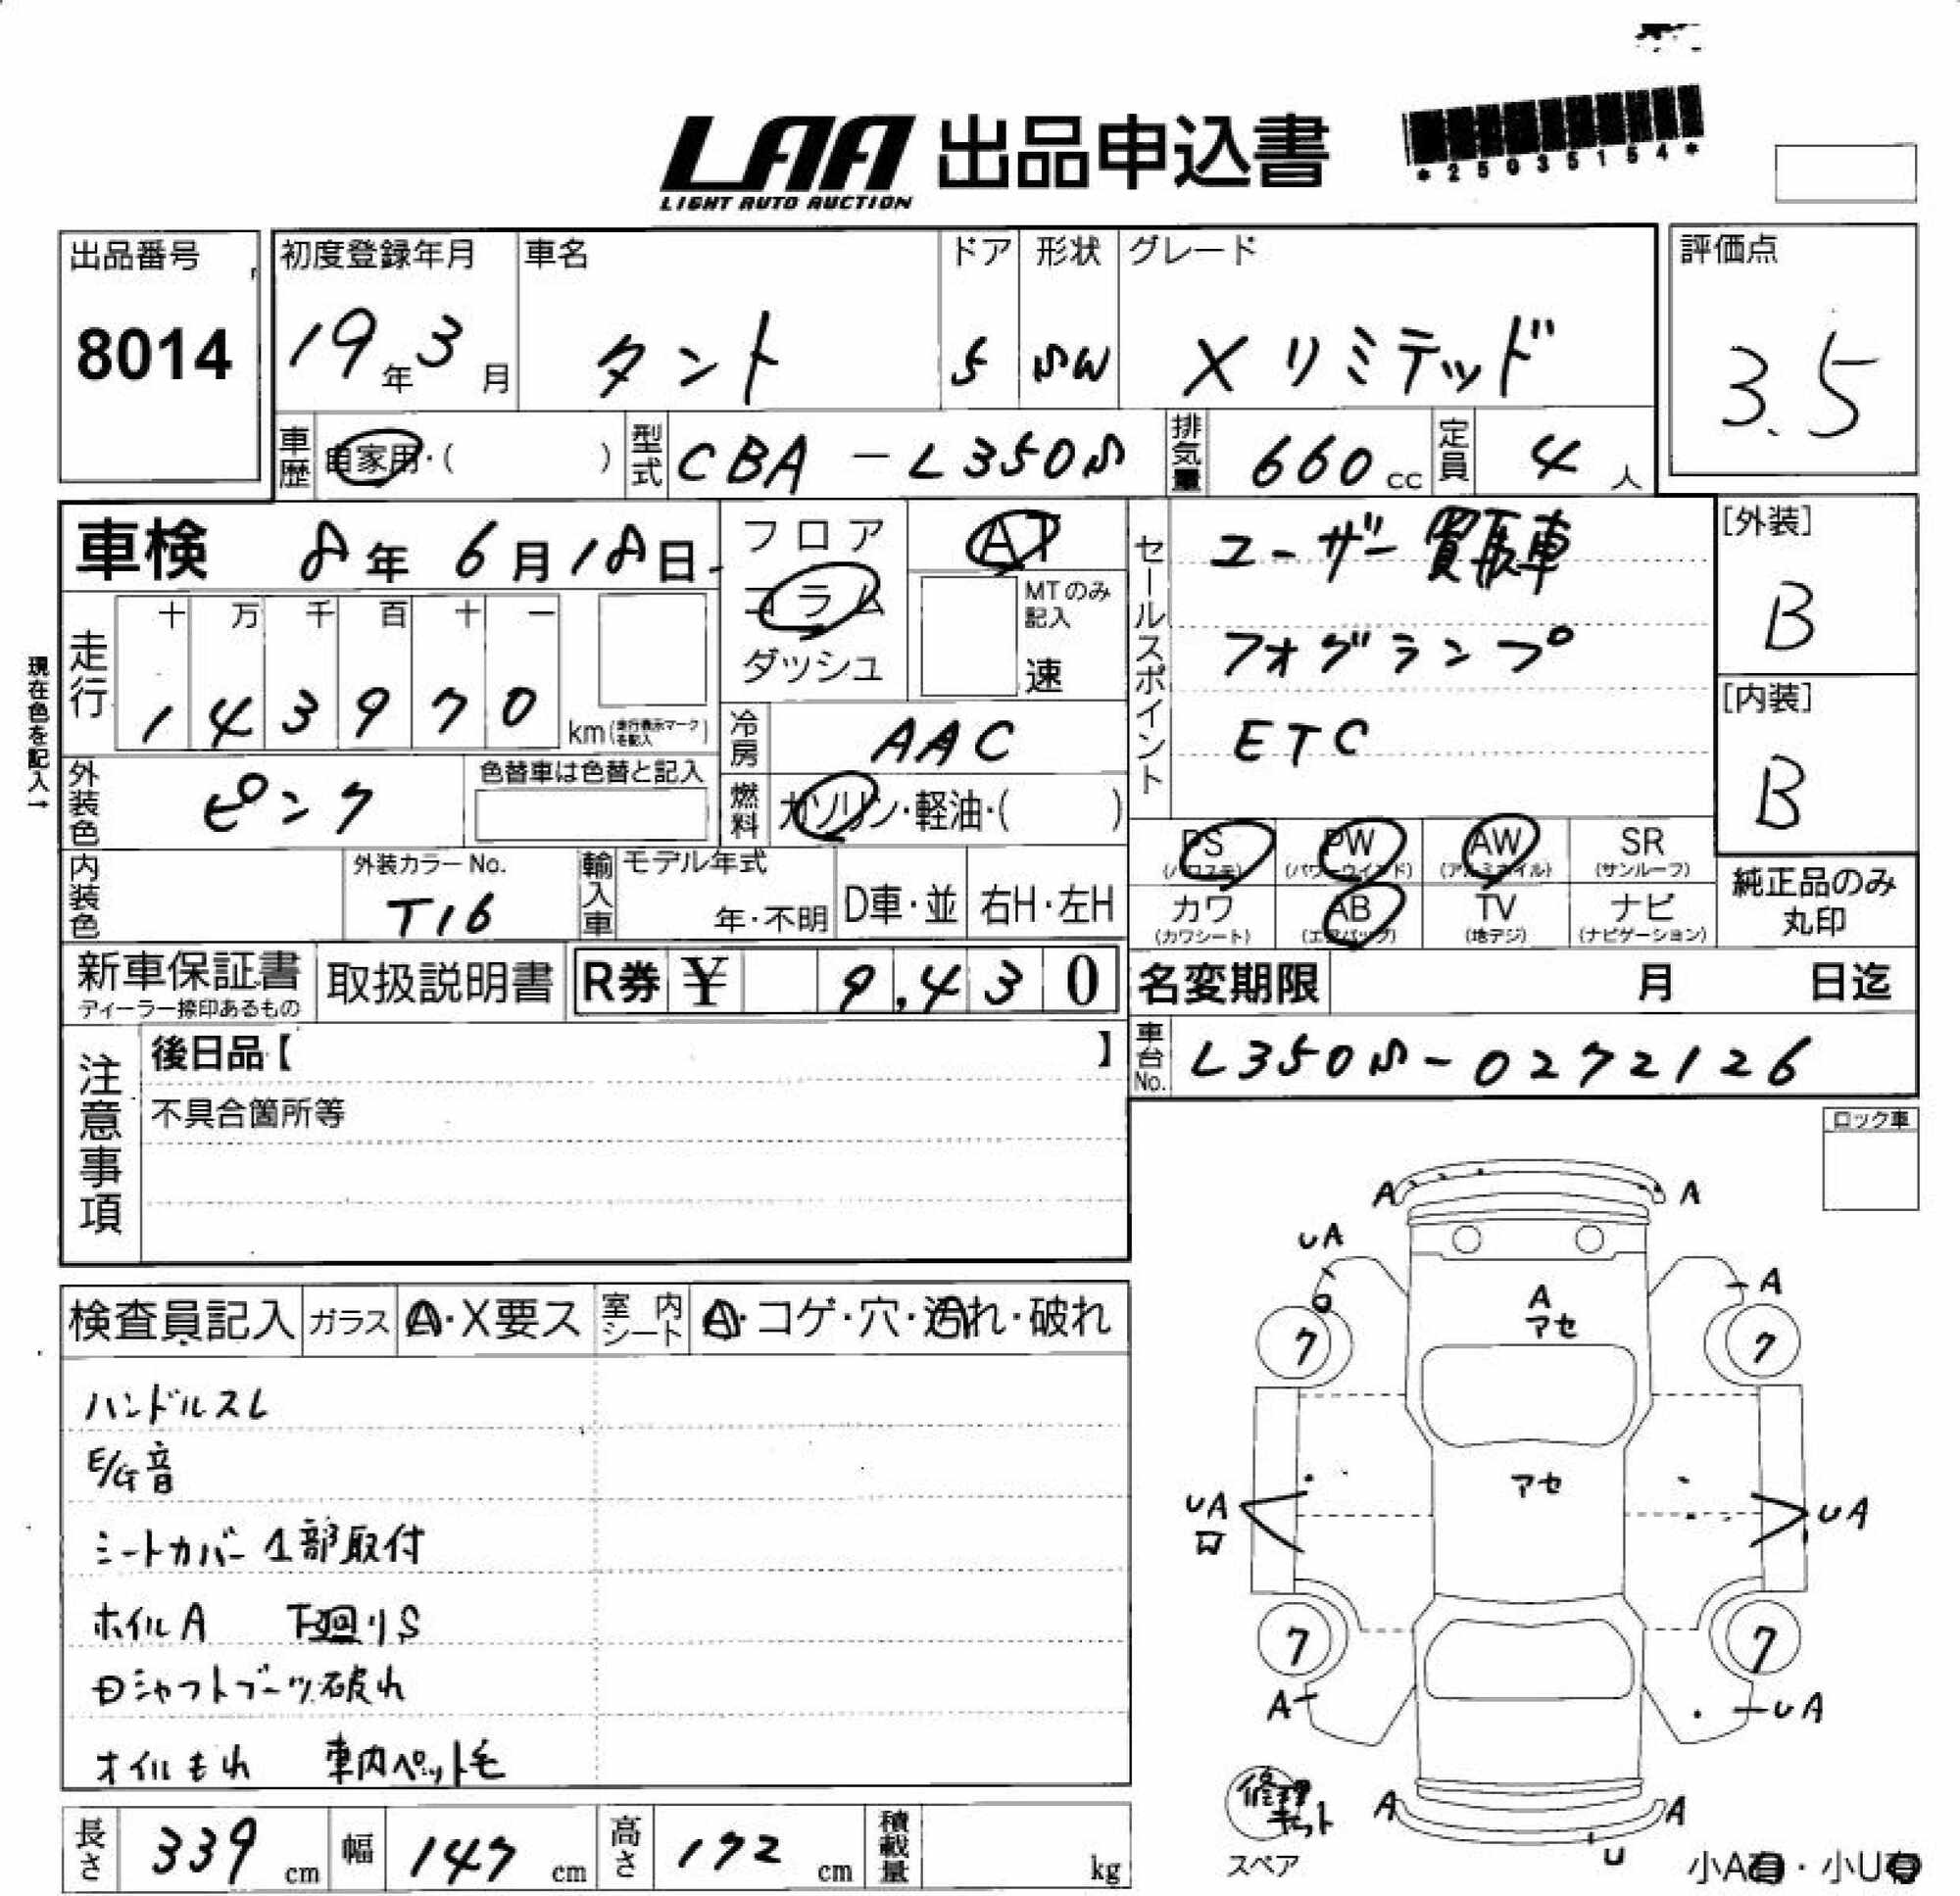 LAA 出品申込書
LIGHT AUTO AUCTION
*25035154*
出品番号
8014
初度登録年月
19年3月
車名
タント
ドア
5
形状
SW
グレード
Xリミテッド
評価点
3.5
車歴 自家用・( )
型式 CBA-L350S
排気量 660cc
定員 4人
車検 8年6月18日
フロア
コラム
ダッシュ
AT
MTのみ記入
速
セールスポイント
ユーザー買取車
フォグランプ
ETC
[外装]
B
[内装]
B
現在色を記入→
走行
十 万 千 百 十 一
1 4 3 9 7 0
km(走行表示マークを記入)
冷房 AAC
外装色 ピンク
色替車は色替と記入
燃料 ガソリン・軽油・( )
PS (パワステ)
PW (パワーウインド)
AW (アルミホイル)
SR (サンルーフ)
カワ (カワシート)
AB (エアバック)
TV (地デジ)
ナビ (ナビゲーション)
純正品のみ丸印
内装色
外装カラーNo.
T16
輸入車
モデル年式
年・不明
D車・並
右H・左H
新車保証書
ディーラー捺印あるもの
取扱説明書
R券 ¥ 9,430
名変期限 月 日迄
車台No. L350S-0272126
注意事項
後日品【 】
不具合箇所等
ロック車
検査員記入
ガラス A・X要ス
室内シート A・コゲ・穴・汚れ・破れ
ハンドルスレ
E/G音
シートカバー1部取付
ホイルA 下廻りS
Dシャフトブーツ破れ
オイルもれ 車内ペット毛
A A
UA
A
A
アセ
7 7
アセ
UA UA
7 7
A UA
修理キット
スペア
A A
U
小A有・小U有
長さ 339cm
幅 147cm
高さ 172cm
積載量 kg